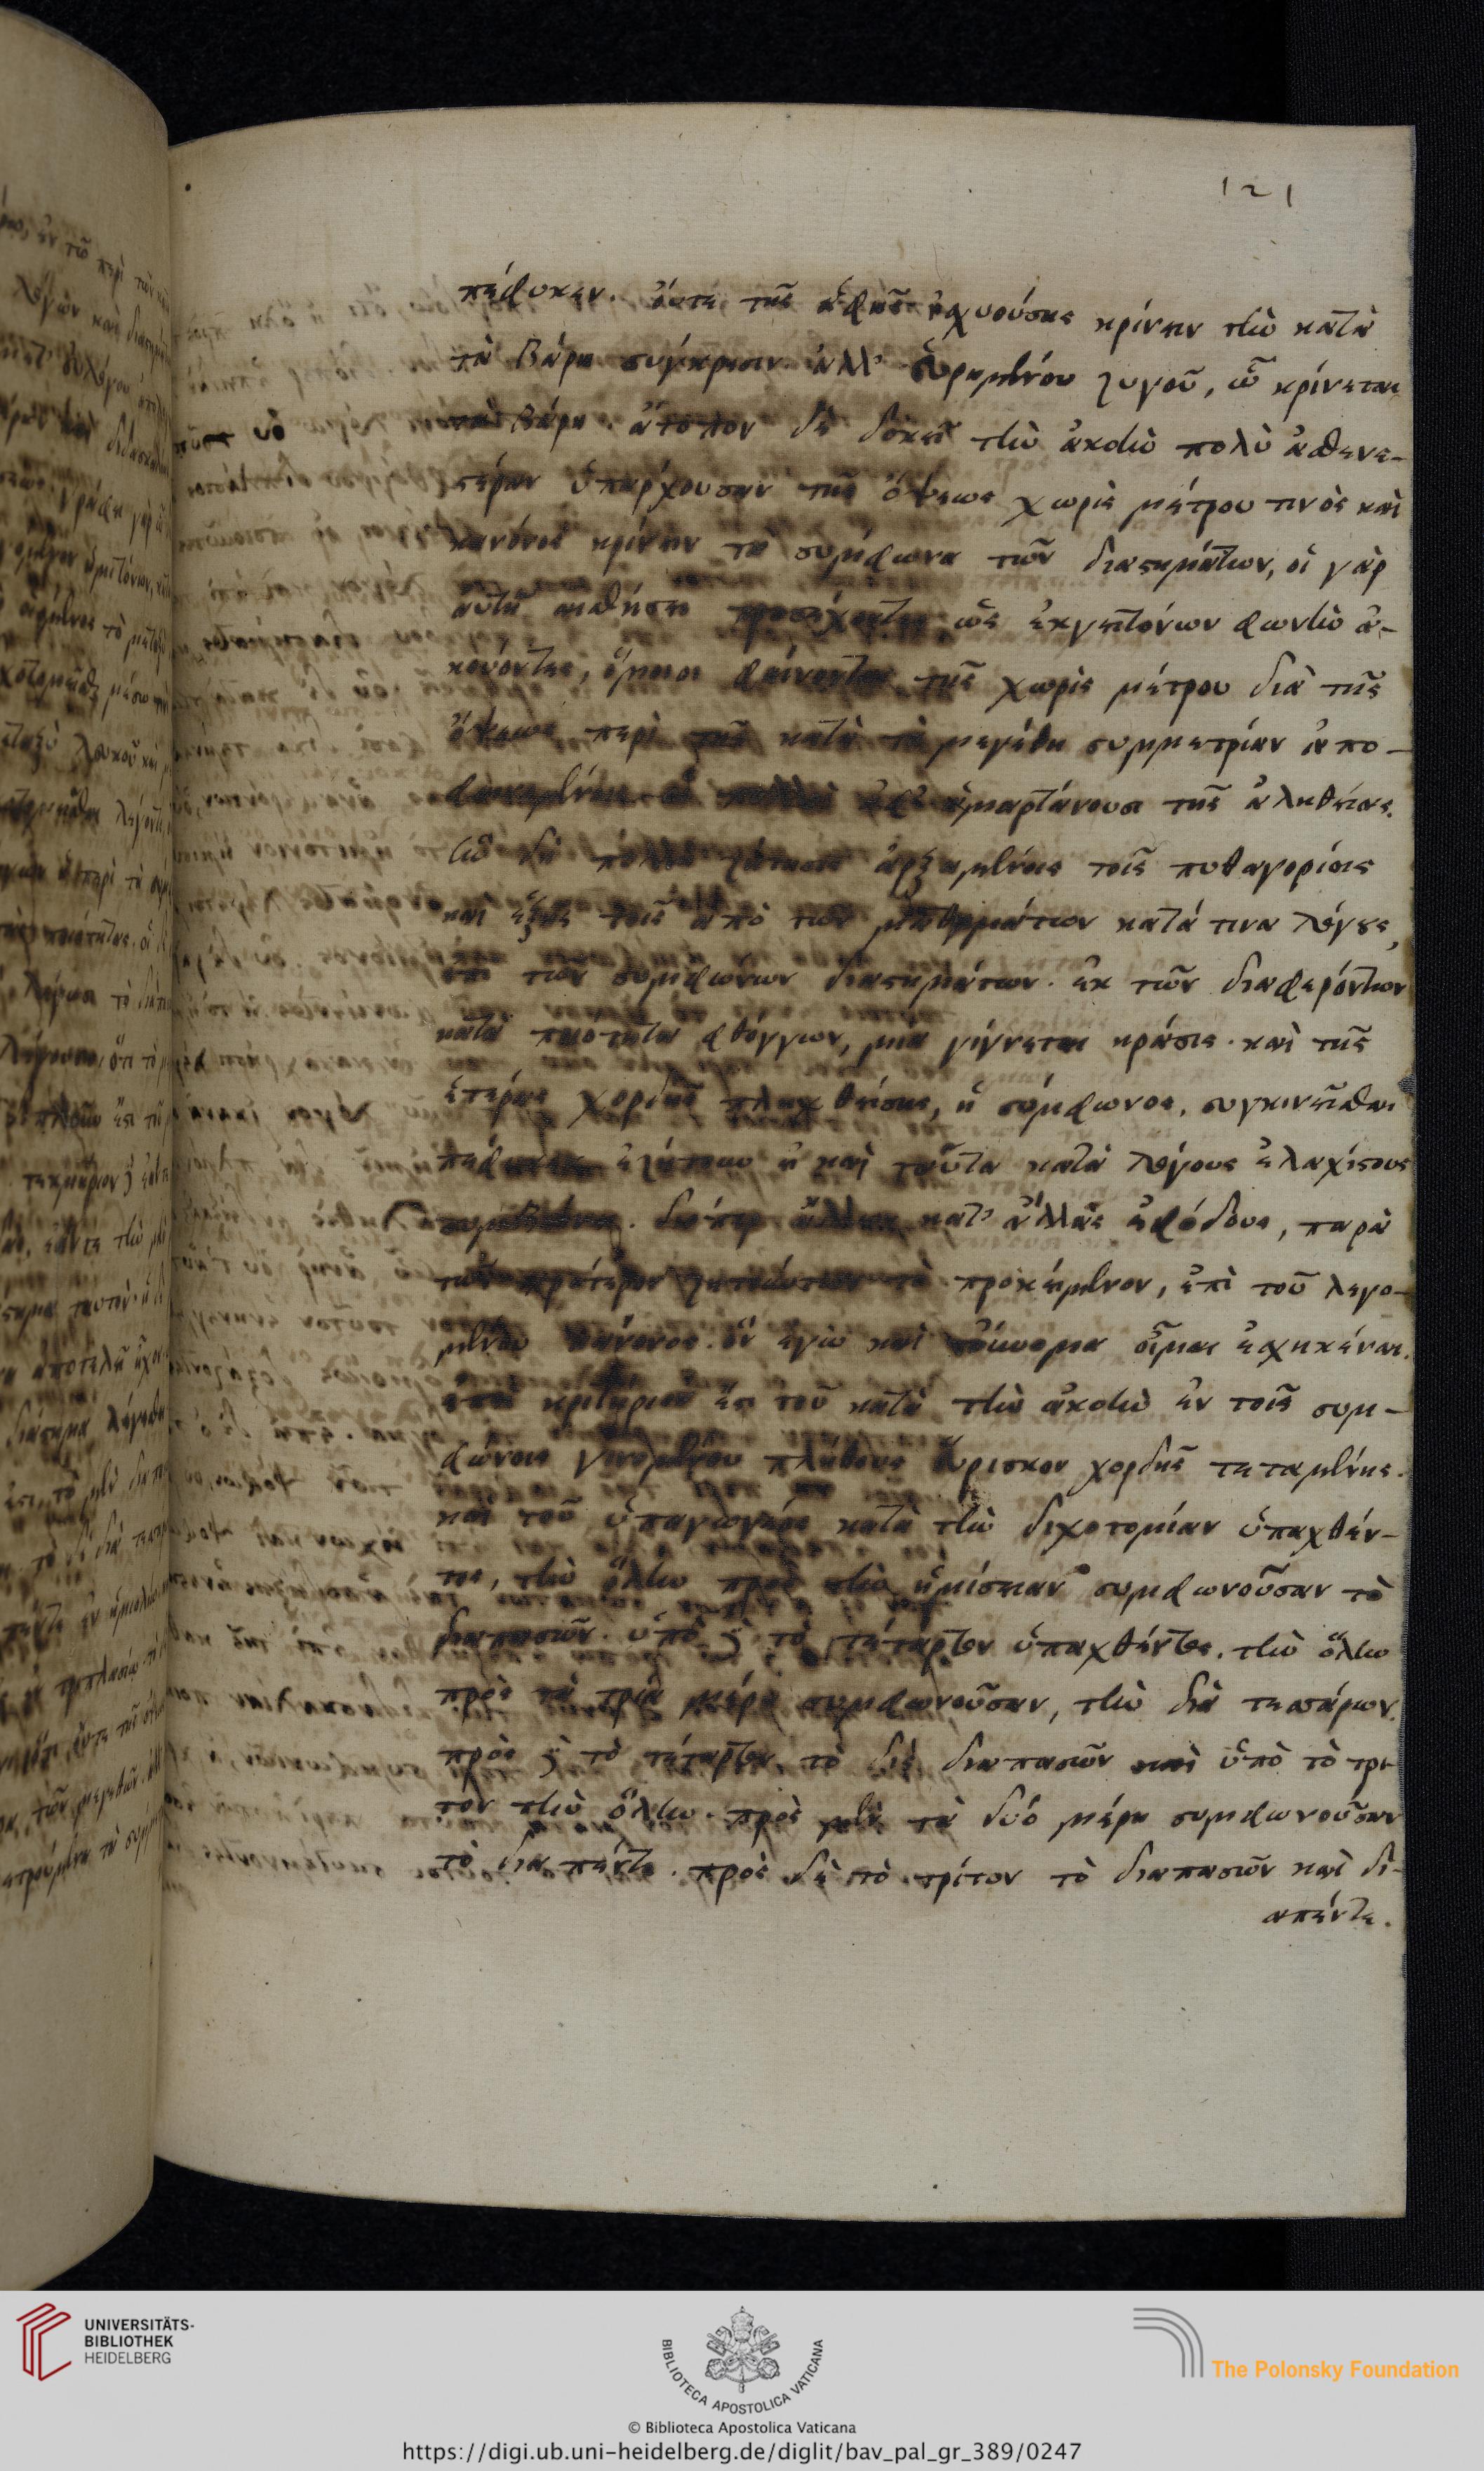 121
πέφυκεν. οὔτε τῆς ἁφῆς ἰσχυούσης κρίνειν τὴν κατὰ
τὰ βάρη σύγκρισιν. ἀλλ' εὑρημένου ζυγοῦ, ᾧ κρίνεται
τὰ βάρη. ἄτοπον δὲ δοκεῖ τὴν ἀκοὴν πολὺ ἀσθενε-
στέραν ὑπάρχουσαν τῆς ὄψεως χωρὶς μέτρου τινὸς καὶ
κανόνος κρίνειν τὰ σύμφωνα τῶν διαστημάτων, οἱ γὰρ
αὐτῇ αἰσθήσει προσέχοντες ὡς ἐκ γειτόνων φωνὴν ἀ-
κούοντες, ὅμοιοι φαίνονται τῆς χωρὶς μέτρου διὰ τῆς
ὄψεως περὶ τῆς κατὰ τὰ μεγέθη συμμετρίαν ἀπο-
ἁμαρτάνουσι τῆς ἀληθείας.
πολλὴ ζήτησις ἀρξαμένοις τοῖς πυθαγορίοις
καὶ ἑξῆς τοῖς ἀπὸ τῶν μαθημάτων κατά τινα λόγους,
ἐπὶ τῶν συμφώνων διαστημάτων. ἐκ τῶν διαφερόντων
κατὰ ποιότητα φθόγγων, μία γίγνεται κρᾶσις. καὶ τῆς
ἑτέρας χορδῆς πληχθείσης, ἡ σύμφωνος, συγκινεῖσθαι
πέφυκεν ἐζήτουν εἰ καὶ ταῦτα κατὰ λόγους ἐλαχίστους
συμβαίνει. διόπερ ἄλλων κατ' ἄλλας ἐφόδους, παρὰ
τῶν πρότερον ζητούντων τὸ προκείμενον, ἐπὶ τοῦ λεγο-
μένου κανόνος. ὃν ἐγὼ καὶ τοὔνομα οἶμαι ἐσχηκέναι.
ἐπεὶ κριτήριον ἐστι τοῦ κατὰ τὴν ἀκοὴν ἐν τοῖς συμ-
φώνοις γινομένου πλήθους εὕρισκον χορδῆς τεταμένης.
καὶ τοῦ ὑπαγωγέος κατὰ τὴν διχοτομίαν ὑπαχθέν-
τος, τὴν ὅλην πρὸς τὴν ἡμίσειαν συμφωνοῦσαν τὸ
διαπασῶν. ὑπὸ δὲ τὸ τέταρτον ὑπαχθέντος. τὴν ὅλην
πρὸς τὰ τρία μέρη συμφωνοῦσαν, τὴν διὰ τεσσάρων.
πρὸς δὲ τὸ τέταρτον τὸ δὶς διαπασῶν καὶ ὑπὸ τὸ τρί-
τον τὴν ὅλην. πρὸς μὲν τὰ δύο μέρη συμφωνοῦσαν
τὸ διαπέντε. πρὸς δὲ τὸ τρίτον τὸ διαπασῶν καὶ δι-
απέντε.
UNIVERSITÄTS-
BIBLIOTHEK
HEIDELBERG
BIBLIOTECA APOSTOLICA VATICANA
The Polonsky Foundation
© Biblioteca Apostolica Vaticana
https://digi.ub.uni-heidelberg.de/diglit/bav_pal_gr_389/0247